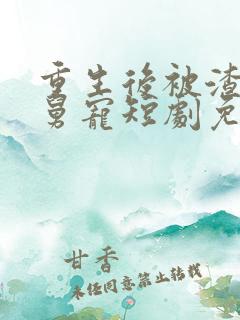 重生後被渣
舅寵短劇免
甘香
未经同意禁止转载